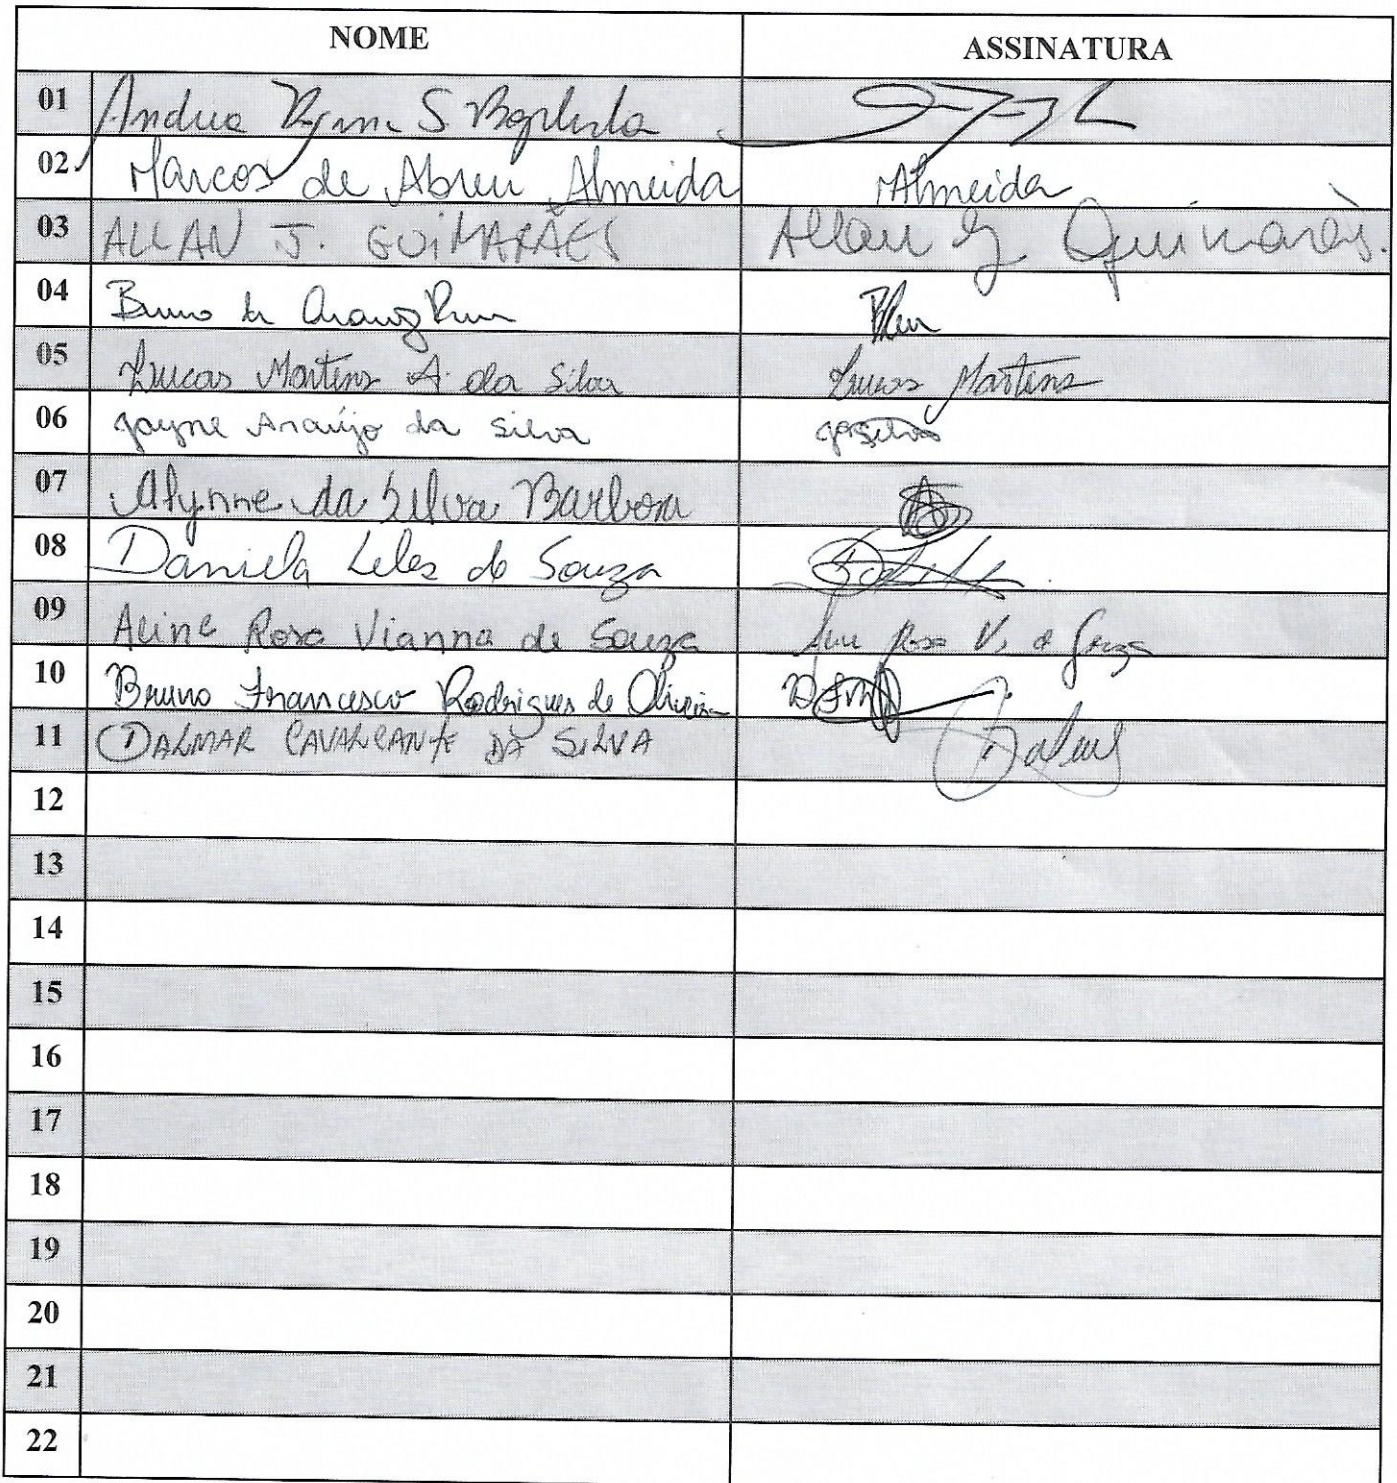 NOME ASSINATURA
01 Andrea S Baptista
02 Marcos de Abreu Almeida MAlmeida
03 ALLAN J. GUIMARÃES Allan J Guimarães.
04 Bruno de
05 Lucas Martins A. da Silva Lucas Martins
06 Jayne Araújo da Silva
07 Alynne da Silva Barbosa
08 Daniela Leles de Souza
09 Aline Rosa Vianna de Souza Aline Rosa V. de Souza
10 Bruno Francesco Rodrigues de Oliveira
11 DALMAR CAVALCANTE DA SILVA
12
13
14
15
16
17
18
19
20
21
22